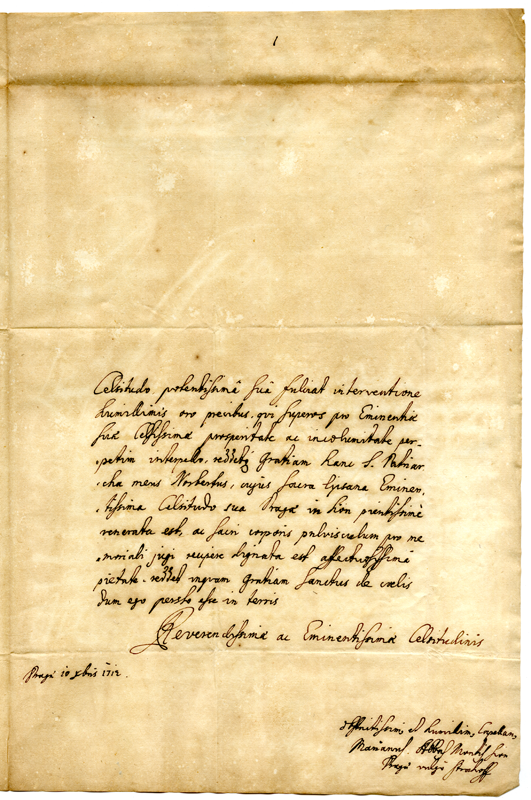 1
Celsitudo potentissimâ suâ fulciat interventione
humillimis oro precibus, qui superos pro Eminentiæ
suæ Celsissimæ prosperitate ac incolumitate per-
-petim interpello. reddetq gratiam hanc S. Patriar
-cha meus Norbertus, cujus sacra Lipsana Eminen,
-tissima Celsitudo sua Pragæ in Sion pientissimè
venerata est, ac sacri corporis pulvisculum pro me
-moriali jugi recipere dignata est affectuosissimâ
pietate. reddet inquam gratiam Sanctus de cœlis
dum ego persto esse in terris
Reverendissimæ ac Eminentissimæ Celsitudinis
Pragæ 10 Xbris 1712.
et humillim, Capellan,
Marianus Abbas Montis Sion
Pragæ vulgò Strahoff